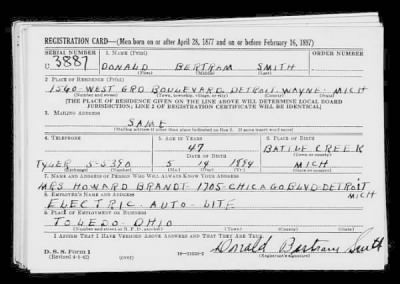 REGISTRATION CARD—(Men born on or after April 28, 1877 and on or before February 16, 1897)
SERIAL NUMBER 1. NAME (Print) ORDER NUMBER
U 3887 DONALD BERTRAM SMITH
(First) (Middle) (Last)
2. PLACE OF RESIDENCE (Print)
1540 WEST GRD BOULEVARD DETROIT WAYNE MICH
(Number and street) (Town, township, village, or city) (County) (State)
[THE PLACE OF RESIDENCE GIVEN ON THE LINE ABOVE WILL DETERMINE LOCAL BOARD
JURISDICTION; LINE 2 OF REGISTRATION CERTIFICATE WILL BE IDENTICAL]
3. MAILING ADDRESS
SAME
[Mailing address if other than place indicated on line 2. If same insert word same]
4. TELEPHONE 5. AGE IN YEARS 6. PLACE OF BIRTH
47 BATTLE CREEK
DATE OF BIRTH
TYLER 5-5390 5 14 1894 MICH
7. NAME AND ADDRESS OF PERSON WHO WILL ALWAYS KNOW YOUR ADDRESS
MRS HOWARD BRANDT 1705 CHICAGO BLVD DETROIT
MICH
8. EMPLOYER'S NAME AND ADDRESS
ELECTRIC AUTO-LITE
9. PLACE OF EMPLOYMENT OR BUSINESS
TOLEDO OHIO
(Number and street or R. F. D. number) (Town) (County) (State)
I AFFIRM THAT I HAVE VERIFIED ABOVE ANSWERS AND THAT THEY ARE TRUE.
D. S. S. Form 1
(Revised 4-1-42) (over)
Donald Bertram Smith
(Registrant's signature)